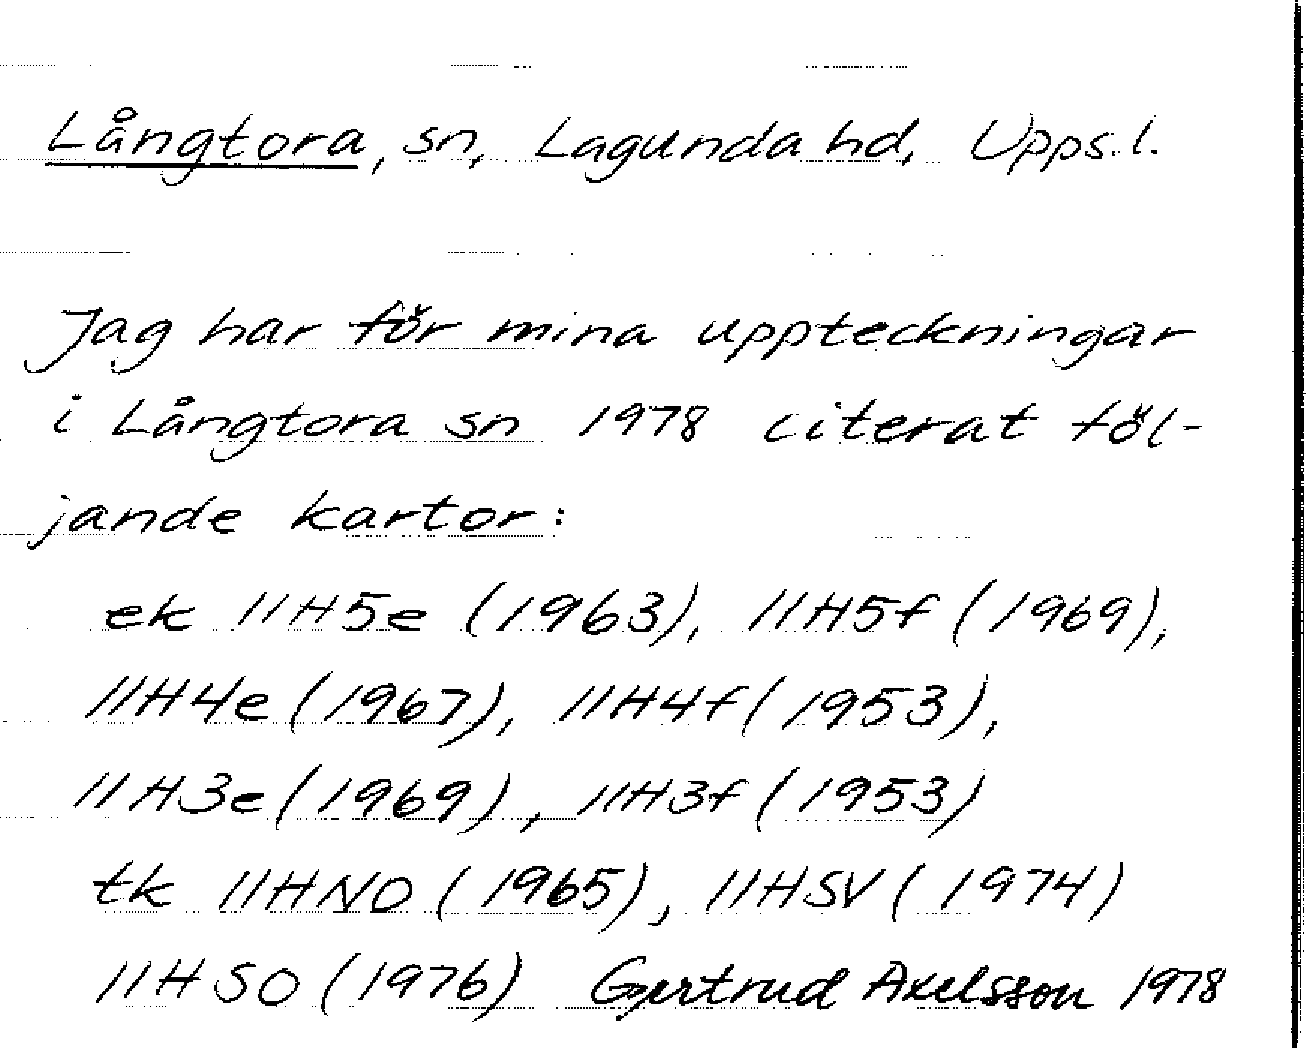 Långtora, sn, Lagunda hd, Upps.l.
Jag har för mina uppteckningar
i Långtora sn 1978 citerat föl-
jande kartor:
ek 11H5e (1963), 11H5f (1969),
11H4e (1967), 11H4f (1953),
11H3e (1969), 11H3f (1953)
tk 11HNO (1965), 11HSV (1974)
11HSO (1976) Gertrud Axelsson 1978